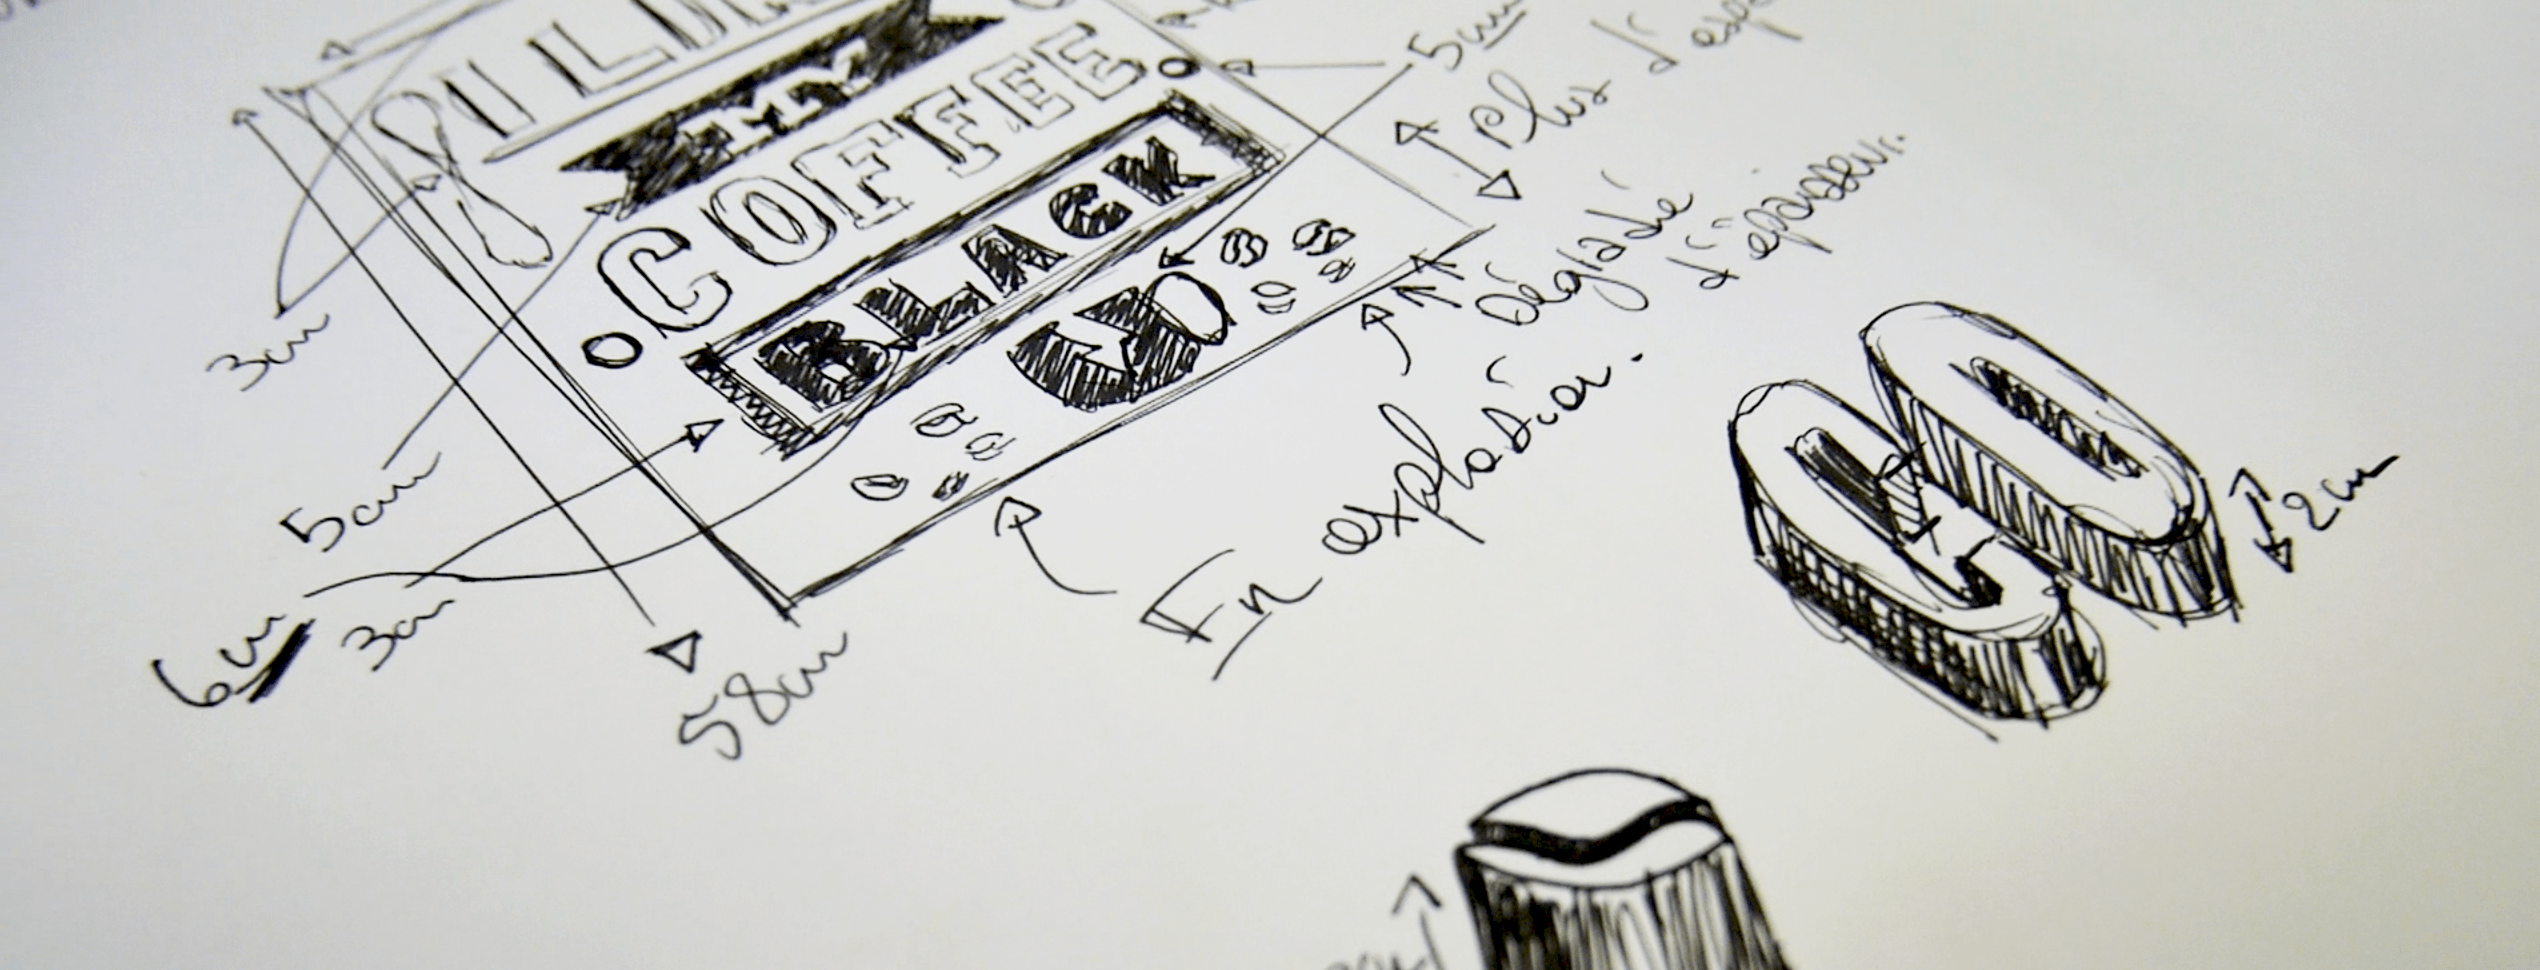 MY
COFFEE
BLACK
5cm
Plus d'esp
Dégradé
d'épaisseur.
En explosion.
3cm
5cm
6cm
3cm
58cm
CO
2cm